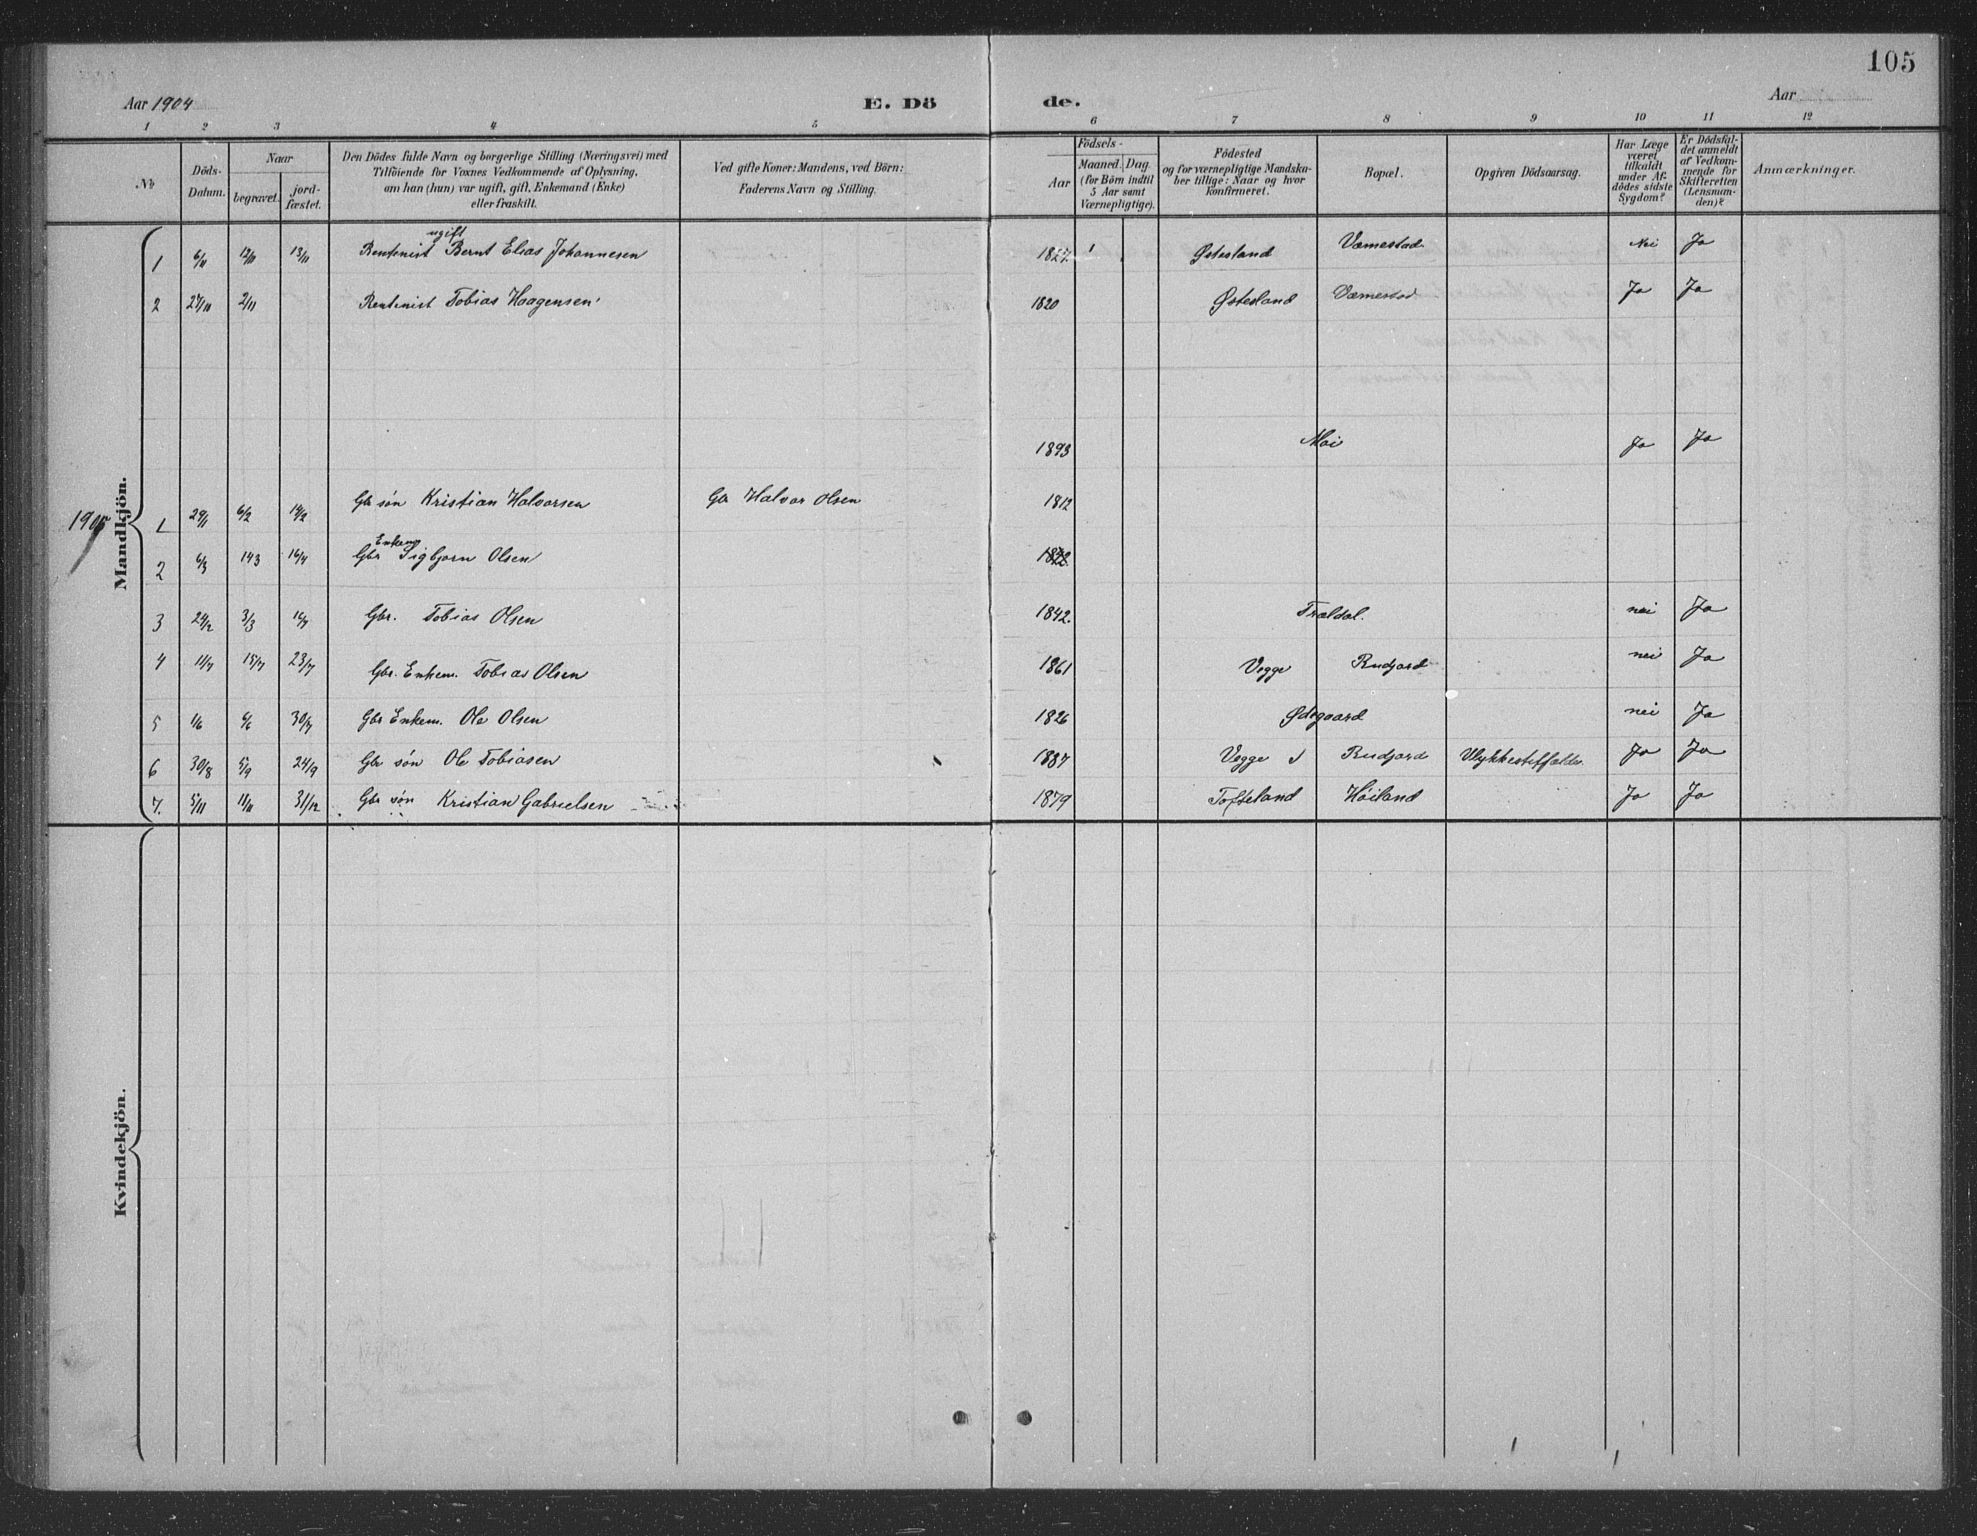 105
Aar 1904
E. Dö de.
Aar
1 2 3 4 5 6 7 8 9 10 11 12
№
Döds-Datum.
Naar
begravet.
jord-fæstet.
Den Dödes fulde Navn og borgerlige Stilling (Næringsvei) med
Tilföiende for Voxnes Vedkommende af Oplysning,
om han (hun) var ugift, gift, Enkemand (Enke)
eller fraskilt.
Ved gifte Koner: Mandens, ved Börn:
Faderens Navn og Stilling.
Födsels-
Aar
Maaned. Dag.
(for Börn indtil
5 Aar samt
Værnepligtige).
Födested
og for værnepligtige Mandska-
ber tillige: Naar og hvor
konfirmeret.
Bopæl.
Opgiven Dödsaarsag.
Har Læge
været
tilkaldt
under Af-
dödes sidste
Sygdom?
Er Dödsfal-
det anmeldt
af Vedkom-
mende for
Skifteretten
(Lensman-
den)?
Anmærkninger.
Mandkjön.
ugift
1 6/11 12/11 13/11 Rentenist Bernt Elias Johannesen 1827. Østesland Væmestad Nei Ja
2 27/11 2/11 Rentenist Tobias Haagensen 1820 Østesland Væmestad Ja Ja
1893 Moi Ja Ja
1905
1 29/1 6/2 14/2 Gbr søn Kristian Halvorsen Gbr Halvor Olsen 1812
Enkem
2 6/3 143 16/4 Gbr Sigbjørn Olsen
3 24/2 3/3 Gbr. Tobias Olsen 1842. Trældal. nei Ja
4 11/7 15/7 23/7 Gbr. Enkem. Tobias Olsen 1861 Vegge Rudjord nei Ja
5 1/6 6/6 30/7 Gbr Enkem. Ole Olsen 1826 Ødegaard nei Ja
6 30/8 5/9 24/9 Gbr søn Ole Tobiasen 1887 Vegge Rudjord Ulykkestilfælde. Ja Ja
7. 5/11 11/11 31/12 Gbr søn Kristian Gabrielsen 1879 Tofteland Höiland Ja Ja
Kvindekjön.